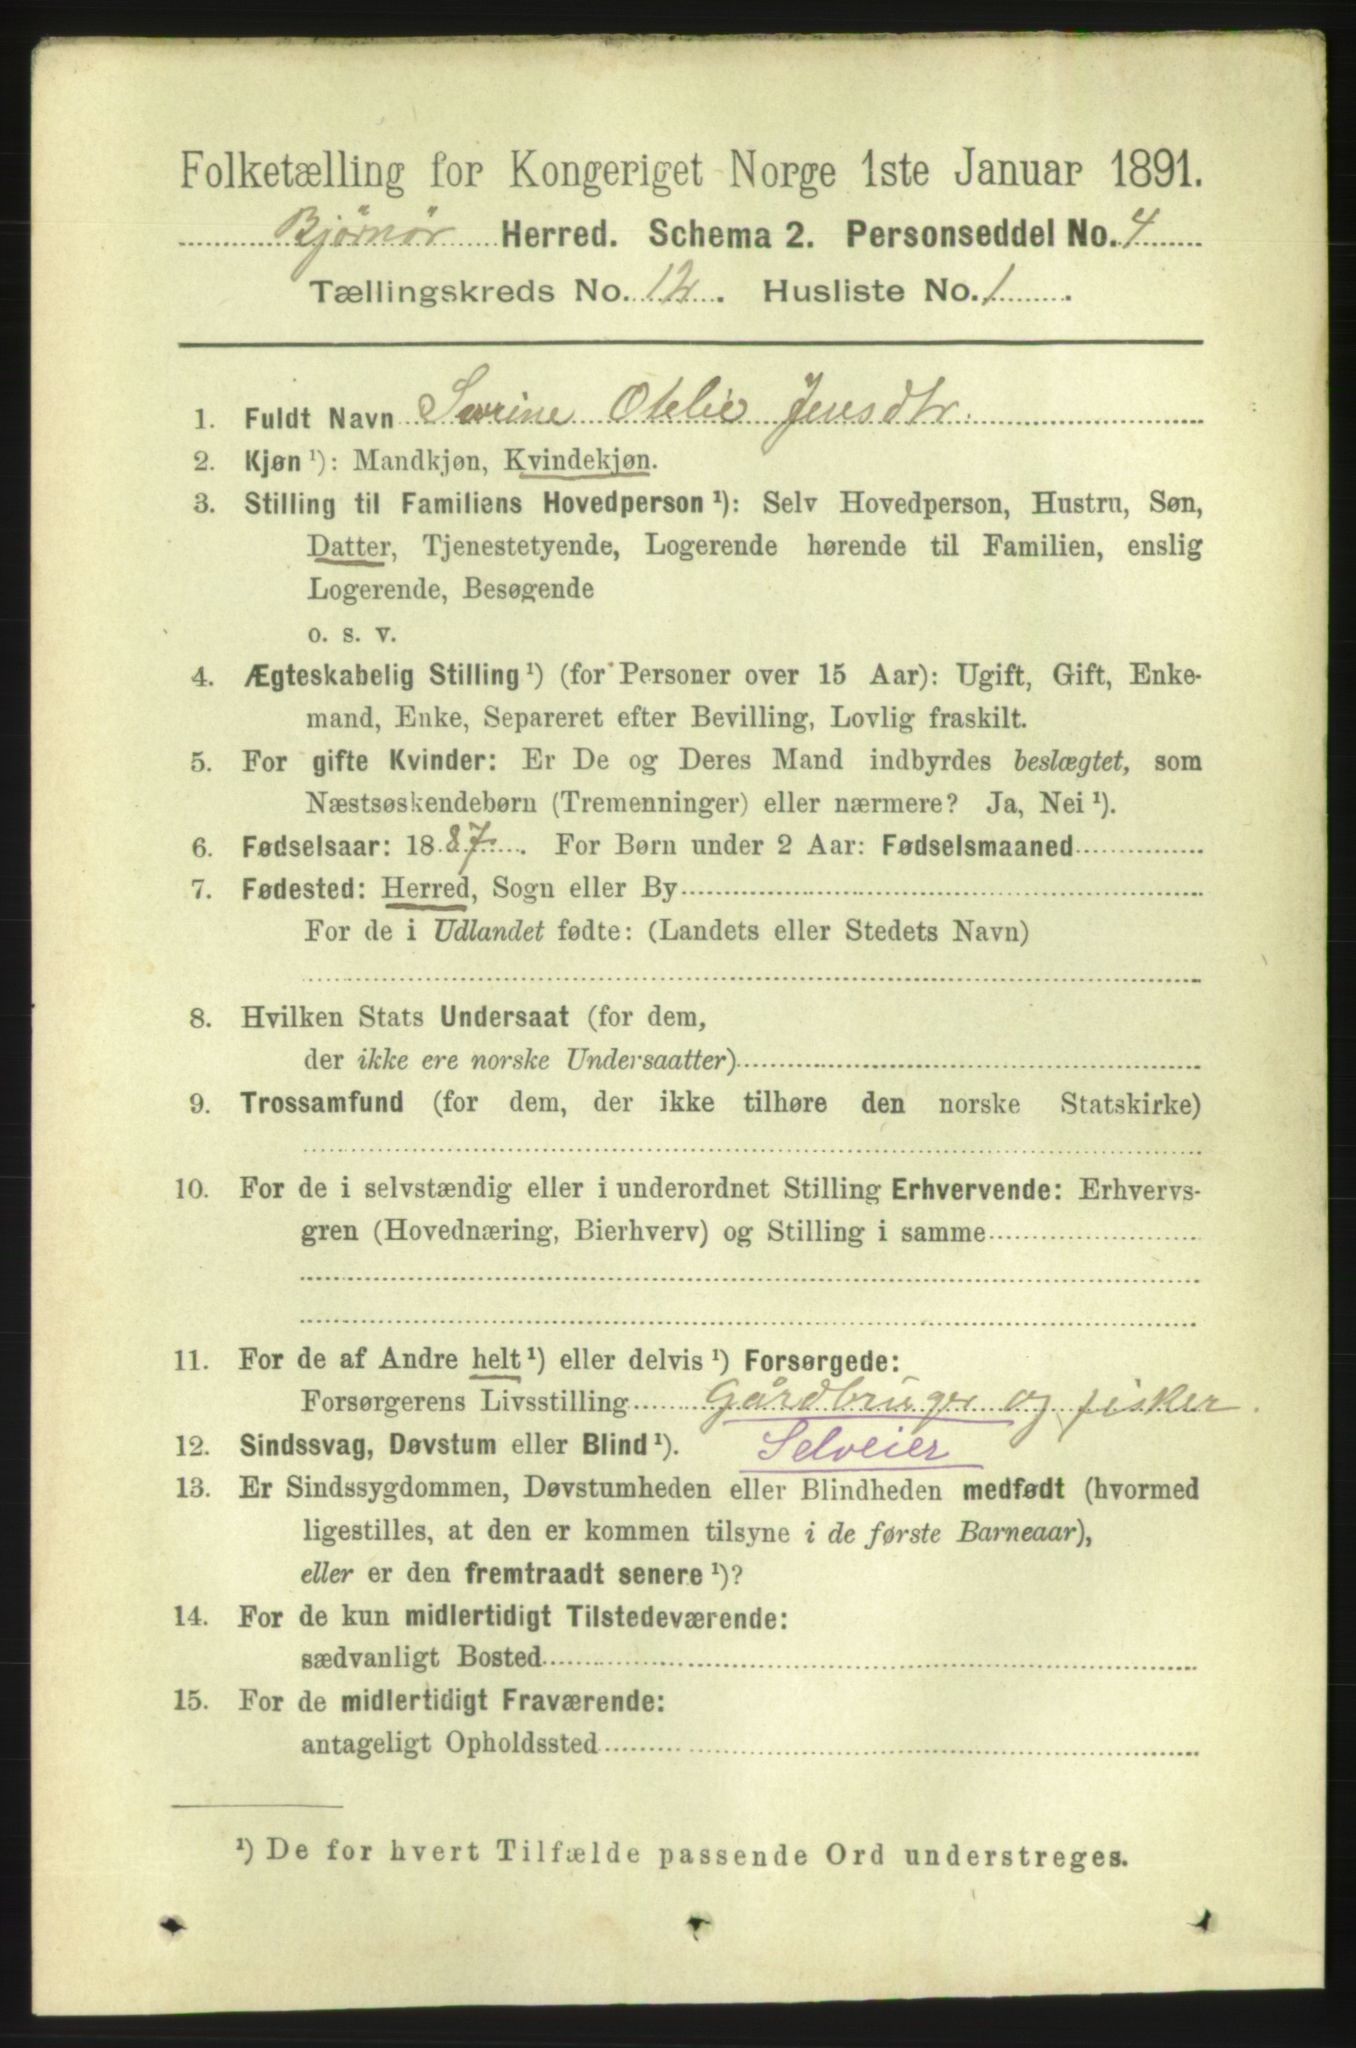 Folketælling for Kongeriget Norge 1ste Januar 1891.
Bjørnør Herred. Schema 2. Personseddel No. 4
Tællingskreds No. 12. Husliste No. 1.
1. Fuldt Navn Serine Otelie Jensdtr.
2. Kjøn ¹): Mandkjøn, Kvindekjøn.
3. Stilling til Familiens Hovedperson ¹): Selv Hovedperson, Hustru, Søn,
Datter, Tjenestetyende, Logerende hørende til Familien, enslig
Logerende, Besøgende
o. s. v.
4. Ægteskabelig Stilling ¹) (for Personer over 15 Aar): Ugift, Gift, Enke-
mand, Enke, Separeret efter Bevilling, Lovlig fraskilt.
5. For gifte Kvinder: Er De og Deres Mand indbyrdes beslægtet, som
Næstsøskendebørn (Tremenninger) eller nærmere? Ja, Nei ¹).
6. Fødselsaar: 1887. For Børn under 2 Aar: Fødselsmaaned
7. Fødested: Herred, Sogn eller By
For de i Udlandet fødte: (Landets eller Stedets Navn)
8. Hvilken Stats Undersaat (for dem,
der ikke ere norske Undersaatter)
9. Trossamfund (for dem, der ikke tilhøre den norske Statskirke)
10. For de i selvstændig eller i underordnet Stilling Erhvervende: Erhvervs-
gren (Hovednæring, Bierhverv) og Stilling i samme
11. For de af Andre helt ¹) eller delvis ¹) Forsørgede:
Forsørgerens Livsstilling Gårdbruger og fisker.
12. Sindssvag, Døvstum eller Blind ¹). Selveier
13. Er Sindssygdommen, Døvstumheden eller Blindheden medfødt (hvormed
ligestilles, at den er kommen tilsyne i de første Barneaar),
eller er den fremtraadt senere ¹)?
14. For de kun midlertidigt Tilstedeværende:
sædvanligt Bosted
15. For de midlertidigt Fraværende:
antageligt Opholdssted
¹) De for hvert Tilfælde passende Ord understreges.